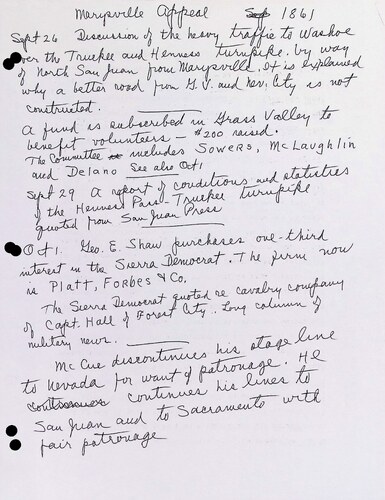 Marysville Appeal Sep 1861
Sept 26 Discussion of the heavy traffic to Washoe
over the Truckee and Henness turnpike. by way
of North San Juan from Marysville. It is explained
why a better road from G.V. and Nev. City is not
constructed.
A fund is subscribed in Grass Valley to
benefit volunteers — $200 raised.
The Committee includes Sowers, McLaughlin
and Delano See also Oct 1
Sept 29 A report of conditions and statistics
of the Henness Pass - Truckee turnpike
quoted from San Juan Press
Oct 1. Geo. E. Shaw purchases one-third
interest in the Sierra Democrat. The firm now
is Platt, Forbes & Co.
The Sierra Democrat quoted re cavalry company
of Capt. Hall of Forest City. Long column of
military news.
McCue discontinues his stage line
to Nevada for want of patronage. He
continues continues his lines to
San Juan and to Sacramento with
fair patronage